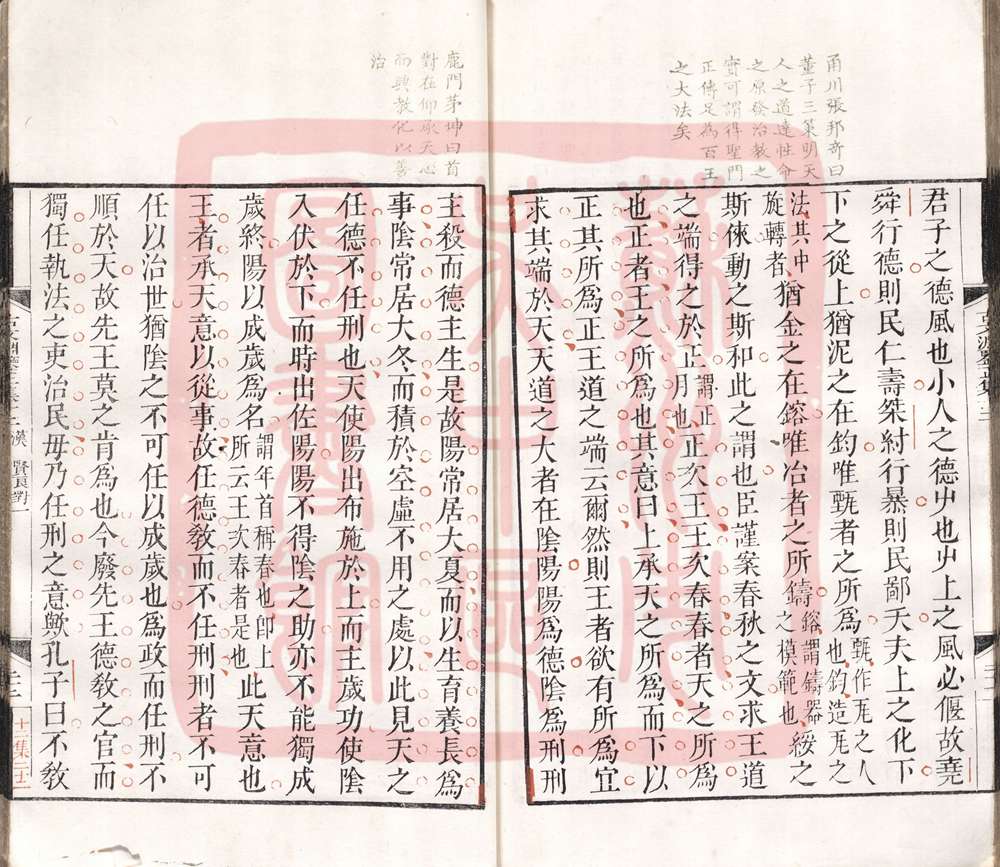 甬川張邦奇曰
董子三策明天
人之道達性命
之原發治教之
實可謂得聖門
正傳足為百王
之大法矣
君子之德風也小人之德屮也屮上之風必偃故堯
舜行德則民仁壽桀紂行暴則民鄙夭夫上之化下
下之從上猶泥之在鈞唯甄者之所爲甄作瓦之人也鈞造瓦之
法其中旋轉者猶金之在鎔唯冶者之所鑄鎔謂鑄器之模範也綏之
斯倈動之斯和此之謂也臣謹案春秋之文求王道
之端得之於正謂正月也正次王王次春春者天之所爲
也正者王之所爲也其意曰上承天之所爲而下以
正其所爲正王道之端云爾然則王者欲有所爲宜
求其端於天天道之大者在陰陽陽爲德陰爲刑刑
鹿門茅坤曰首
對在仰承天心
而興教化以善
治
主殺而德主生是故陽常居大夏而以生育養長爲
事陰常居大冬而積於空虛不用之處以此見天之
任德不任刑也天使陽出布施於上而主歲功使陰
入伏於下而時出佐陽陽不得陰之助亦不能獨成
歲終陽以成歲爲名謂年首稱春也卽上所云王次春者是也此天意也
王者承天意以從事故任德教而不任刑刑者不可
任以治世猶陰之不可任以成歲也爲政而任刑不
順於天故先王莫之肯爲也今廢先王德教之官而
獨任執法之吏治民毋乃任刑之意歟孔子曰不教
漢
賢良對一